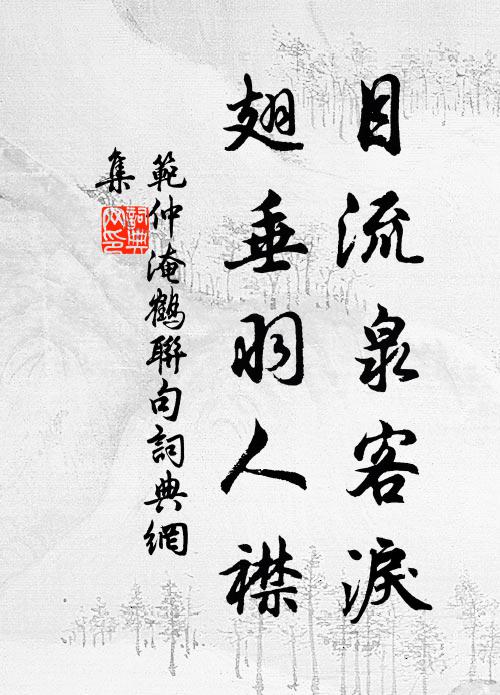 目流泉客淚
翅垂羽人襟
範仲淹鶴聯句詞典網
集
詞典网印